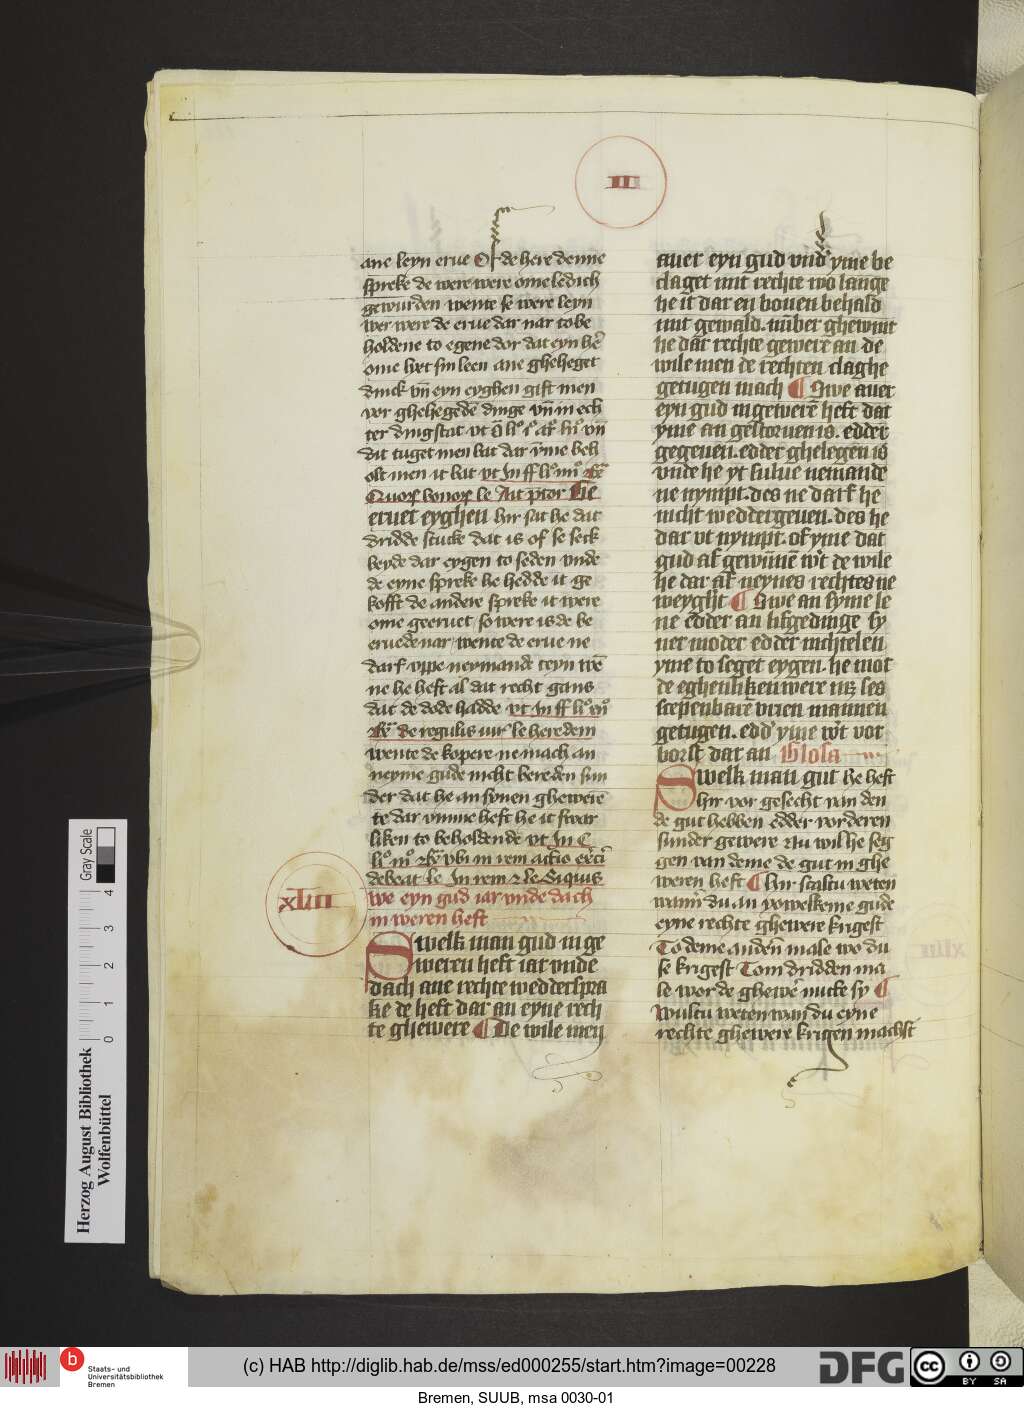 III
ane leyn erue Of de here denne
spreke de were were ome ledich
geworden wente se were leyn
wer were de erue dar nar to be
holdene to egene dor dat eyn hē
ome lyet sin leen ane gheheget
dinck vn̄ eyn eyghen gift men
vor ghehegedē dinge vn̄ in ech
ter dingstat vt
dit tuget men bat dar yme beh
olt men it bat vt In ff
le Ait ptor Lie
eruet eyghen hir sat he dat
dridde stucke dat is of se seck
beyde dar eygen to seden vnde
de eyne spreke he hedde it ge
kofft de andere spreke it were
ome geeruet so were is de be
eruede nar wente de erue ne
darf vppe neymande teyn wē
ne he heft al dat recht gans
dat de dode hadde vt In ff
De regulis iur le heredem
wente de kopere ne mach an
neyme gude nicht bereden sun
der dat he an synen ghewere
te dar vmme heft he it swar
liken to beholdende vt In C
vbi in rem actio
debeat le In rem le Siquis
XLIII
we eyn gud iar vnde dach
in weren heft
Swelk man gud in ge
weren heft iar vnde
dach ane rechte wedderspra
ke de heft dar an eyne rech
te ghewere ¶ De wile men
auer eyn gud vnd yme be
claget mit rechte wo lange
he it dar en bouen behald
mit gewald. nūber ghewint
he dar rechte gewere an de
wile men de rechten claghe
getugen mach ¶ Swe auer
eyn gud in gewerē heft dat
yme an gestoruen is. edder
gegeuen. edder ghelegen is
vnde he yt sulue nemande
ne nympt. des ne darf he
nicht weddergeuen. des he
dar vt nympt. of yme dat
gud af gewunnē wt de wile
he dar af neynes rechtes ne
weyght ¶ Swe an syme le
ne edder an lifgedinge sy
ner moder edder nichtelen
yme to seget eygen. he mot
de eghenliken were mz ses
scepenbarē vrien mannen
getugen. edd' yme wt vor
borst dar an Glosa
Swelk man gut he heft
hir vor gesecht van den
de gut hebben edder vorderen
sunder gewere nu wil he seg
gen van deme de gut in ghe
weren heft ¶ hir scaltu weten
wanū du an vowelkeme gude
eyne rechte ghewere krigest
To deme anden male wo du
se krigest Tom dridden ma
le wor de ghewē nutte sy ¶
Wultu weten wan du eyne
rechte ghewere krigen machst
Herzog August Bibliothek
Wolfenbüttel
Gray Scale
0 1 2 3 4
b
Staats- und
Universitätsbibliothek
Bremen
(c) HAB http://diglib.hab.de/mss/ed000255/start.htm?image=00228
DFG
cc BY SA
Bremen, SUUB, msa 0030-01